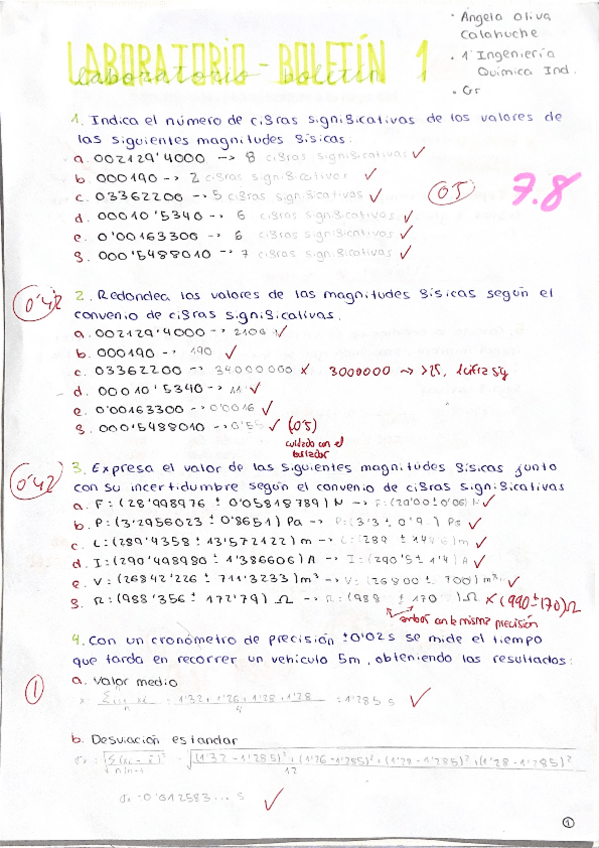 · Ángela Oliva
Calahuche
· 1º Ingeniería
Química Ind.
· Gr
LABORATORIO - BOLETÍN 1
laboratorio boletín 1
1. Indica el número de cifras significativas de los valores de
las siguientes magnitudes físicas:
a. 002129'4000 --> 8 cifras significativas ✓
b. 000190 --> 2 cifras significativas ✓
c. 03362200 --> 5 cifras significativas ✓
d. 00010'5340 --> 6 cifras significativas ✓
e. 0'00163300 --> 6 cifras significativas ✓
f. 000'5488010 --> 7 cifras significativas ✓
05
7.8
0'42
2. Redondea los valores de las magnitudes físicas según el
convenio de cifras significativas.
a. 002129'4000 --> ✓
b. 000190 --> 190 ✓
c. 03362200 --> 34000000 x 3000000 → >25, 1 cifra sg
d. 00010'5340 --> 11 ✓
e. 0'00163300 --> 0'0016 ✓
f. 000'5488010 --> 0'55 ✓ (0'5)
cuidado con el
0'42
3. Expresa el valor de las siguientes magnitudes físicas junto
con su incertidumbre según el convenio de cifras significativas
a. F: (28'998976 ± 0'05818789) N --> F: ✓
b. P: (3'2956023 ± 0'8651) Pa --> P: (3'3 ± 0'9) Pa ✓
c. L: (289'4358 ± 13'572122) m --> L: (289 ± ) m ✓
d. I: (290'498980 ± 1'386606) A --> I: (290'5 ± 1'4) A ✓
e. V: (26842'226 ± 711'3233) m³ --> V: (26800 ± 700) m³ ✓
f. R: (988'356 ± 172'79) Ω --> R: (988 ± 170) Ω x (990 ± 170) Ω
ambos con la misma precisión
4. Con un cronómetro de precisión ±0'02s se mide el tiempo
que tarda en recorrer un vehículo 5m, obteniendo los resultados:
1
a. Valor medio
n : 1'32 + 1'26 + 1'28 + 1'28 / 4 : 1'285 s ✓
b. Desviación estandar
n(n-1) √(1'32 - 1'285)² + (1'26 - 1'285)² + (1'28 - 1'285)² + (1'28 - 1'285)²
12
0'012583... s ✓
1